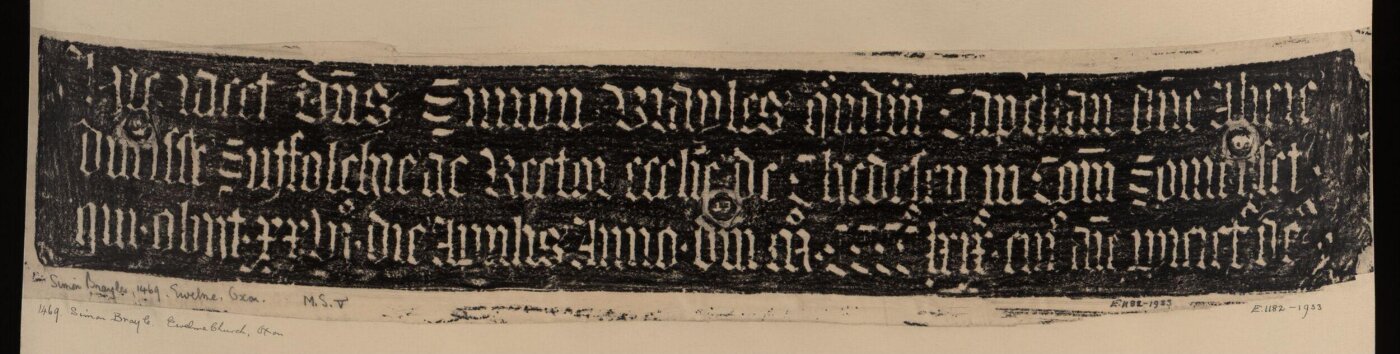 Hic iacet dn̄s Simon Brayles q̄ndm̄ Capellan dn̄e Alicie
ducisse Suffolchie ac Rector ecclīe de Chedesey in Com̄ Somerset
qui obiit xxviº die Aprilis Anno dni Mº CCCCº lxixº cuiº aīe ppiciet de
Simon Brayles, 1469. Ewelme, Oxon. M.S. V
E.1182-1933
1469 Simon Brayle. Ewelme Church, Oxon
E.1182-1933